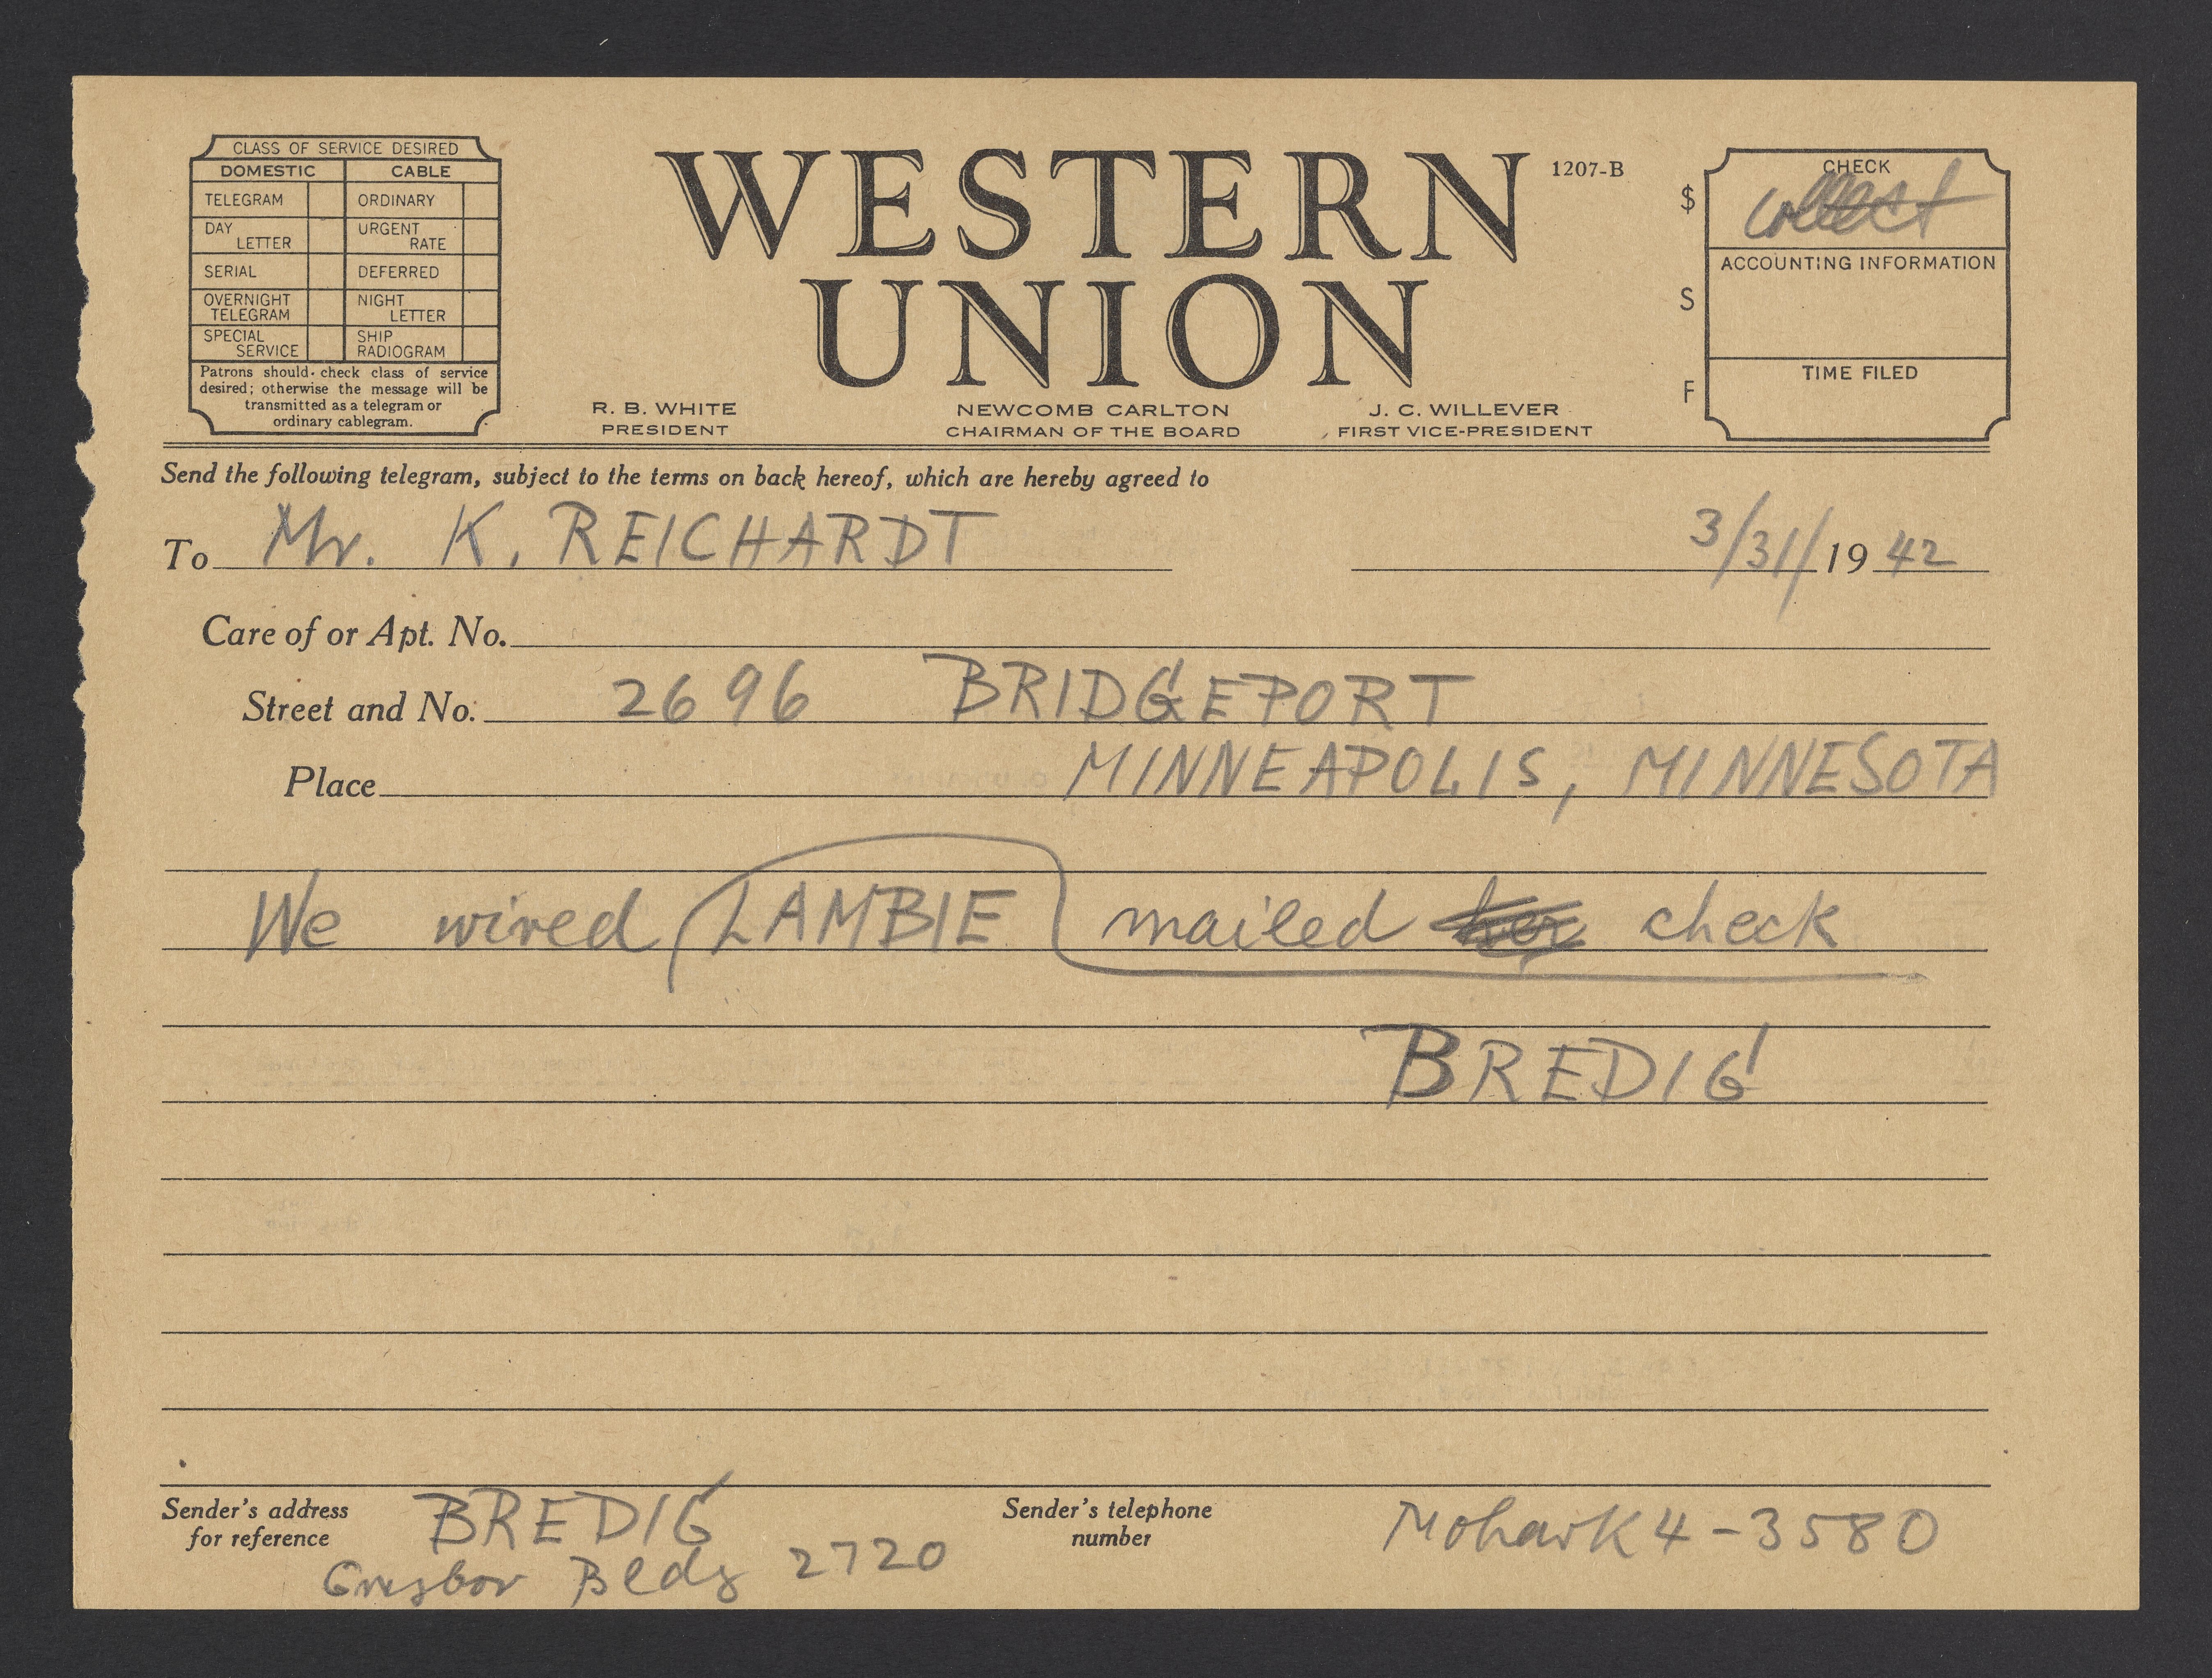 CLASS OF SERVICE DESIRED
DOMESTIC CABLE
TELEGRAM ORDINARY
DAY LETTER URGENT RATE
SERIAL DEFERRED
OVERNIGHT TELEGRAM NIGHT LETTER
SPECIAL SERVICE SHIP RADIOGRAM
Patrons should check class of service
desired; otherwise the message will be
transmitted as a telegram or
ordinary cablegram.
WESTERN
UNION
1207-B
R. B. WHITE
PRESIDENT
NEWCOMB CARLTON
CHAIRMAN OF THE BOARD
J. C. WILLEVER
FIRST VICE-PRESIDENT
$
S
F
CHECK
collect
ACCOUNTING INFORMATION
TIME FILED
Send the following telegram, subject to the terms on back hereof, which are hereby agreed to
To Mr. K. REICHARDT 3/31/1942
Care of or Apt. No.
Street and No. 2696 BRIDGEPORT
Place MINNEAPOLIS, MINNESOTA
We wired LAMBIE mailed her check
BREDIG
Sender's address
for reference
BREDIG
Bldg 2720
Sender's telephone
number
Mohawk 4-3580